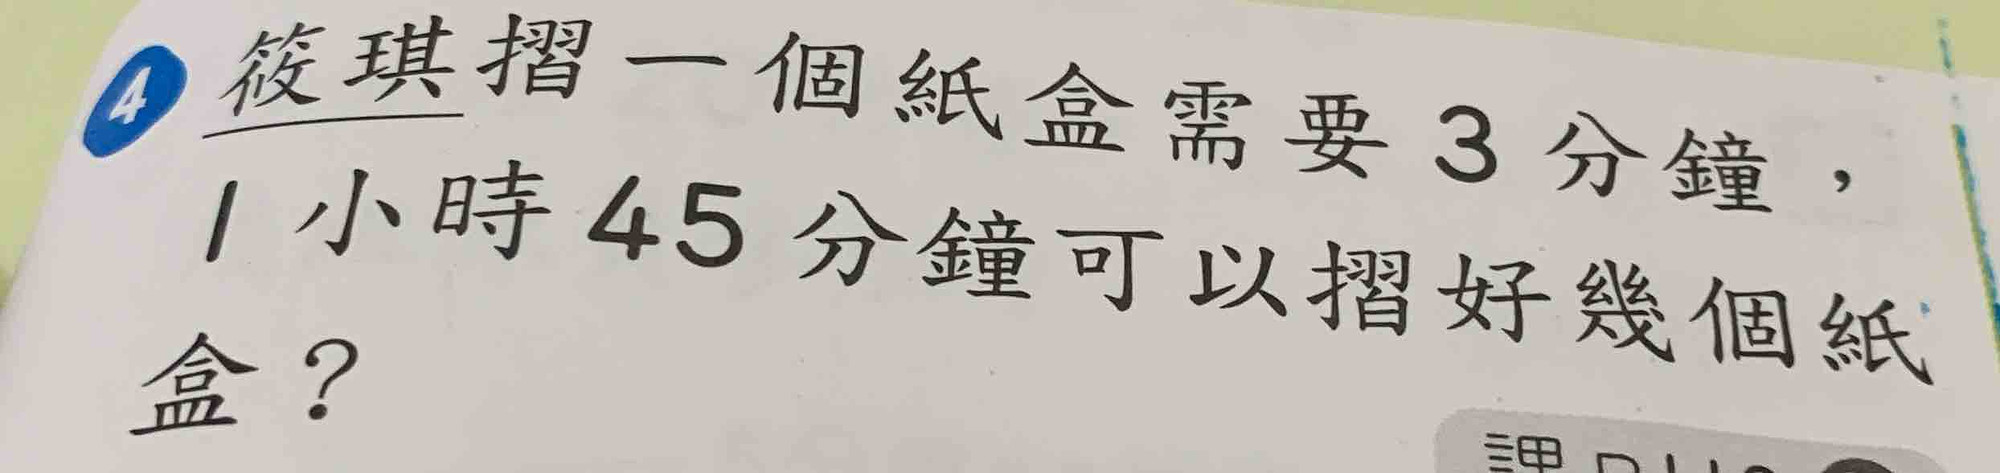 4 筱琪摺一個紙盒需要3分鐘，
1小時45分鐘可以摺好幾個紙
盒？